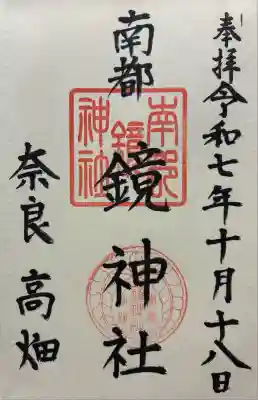 奉拝令和七年十月十八日
南都
鏡神社
奈良 高畑
南都
鏡
神社